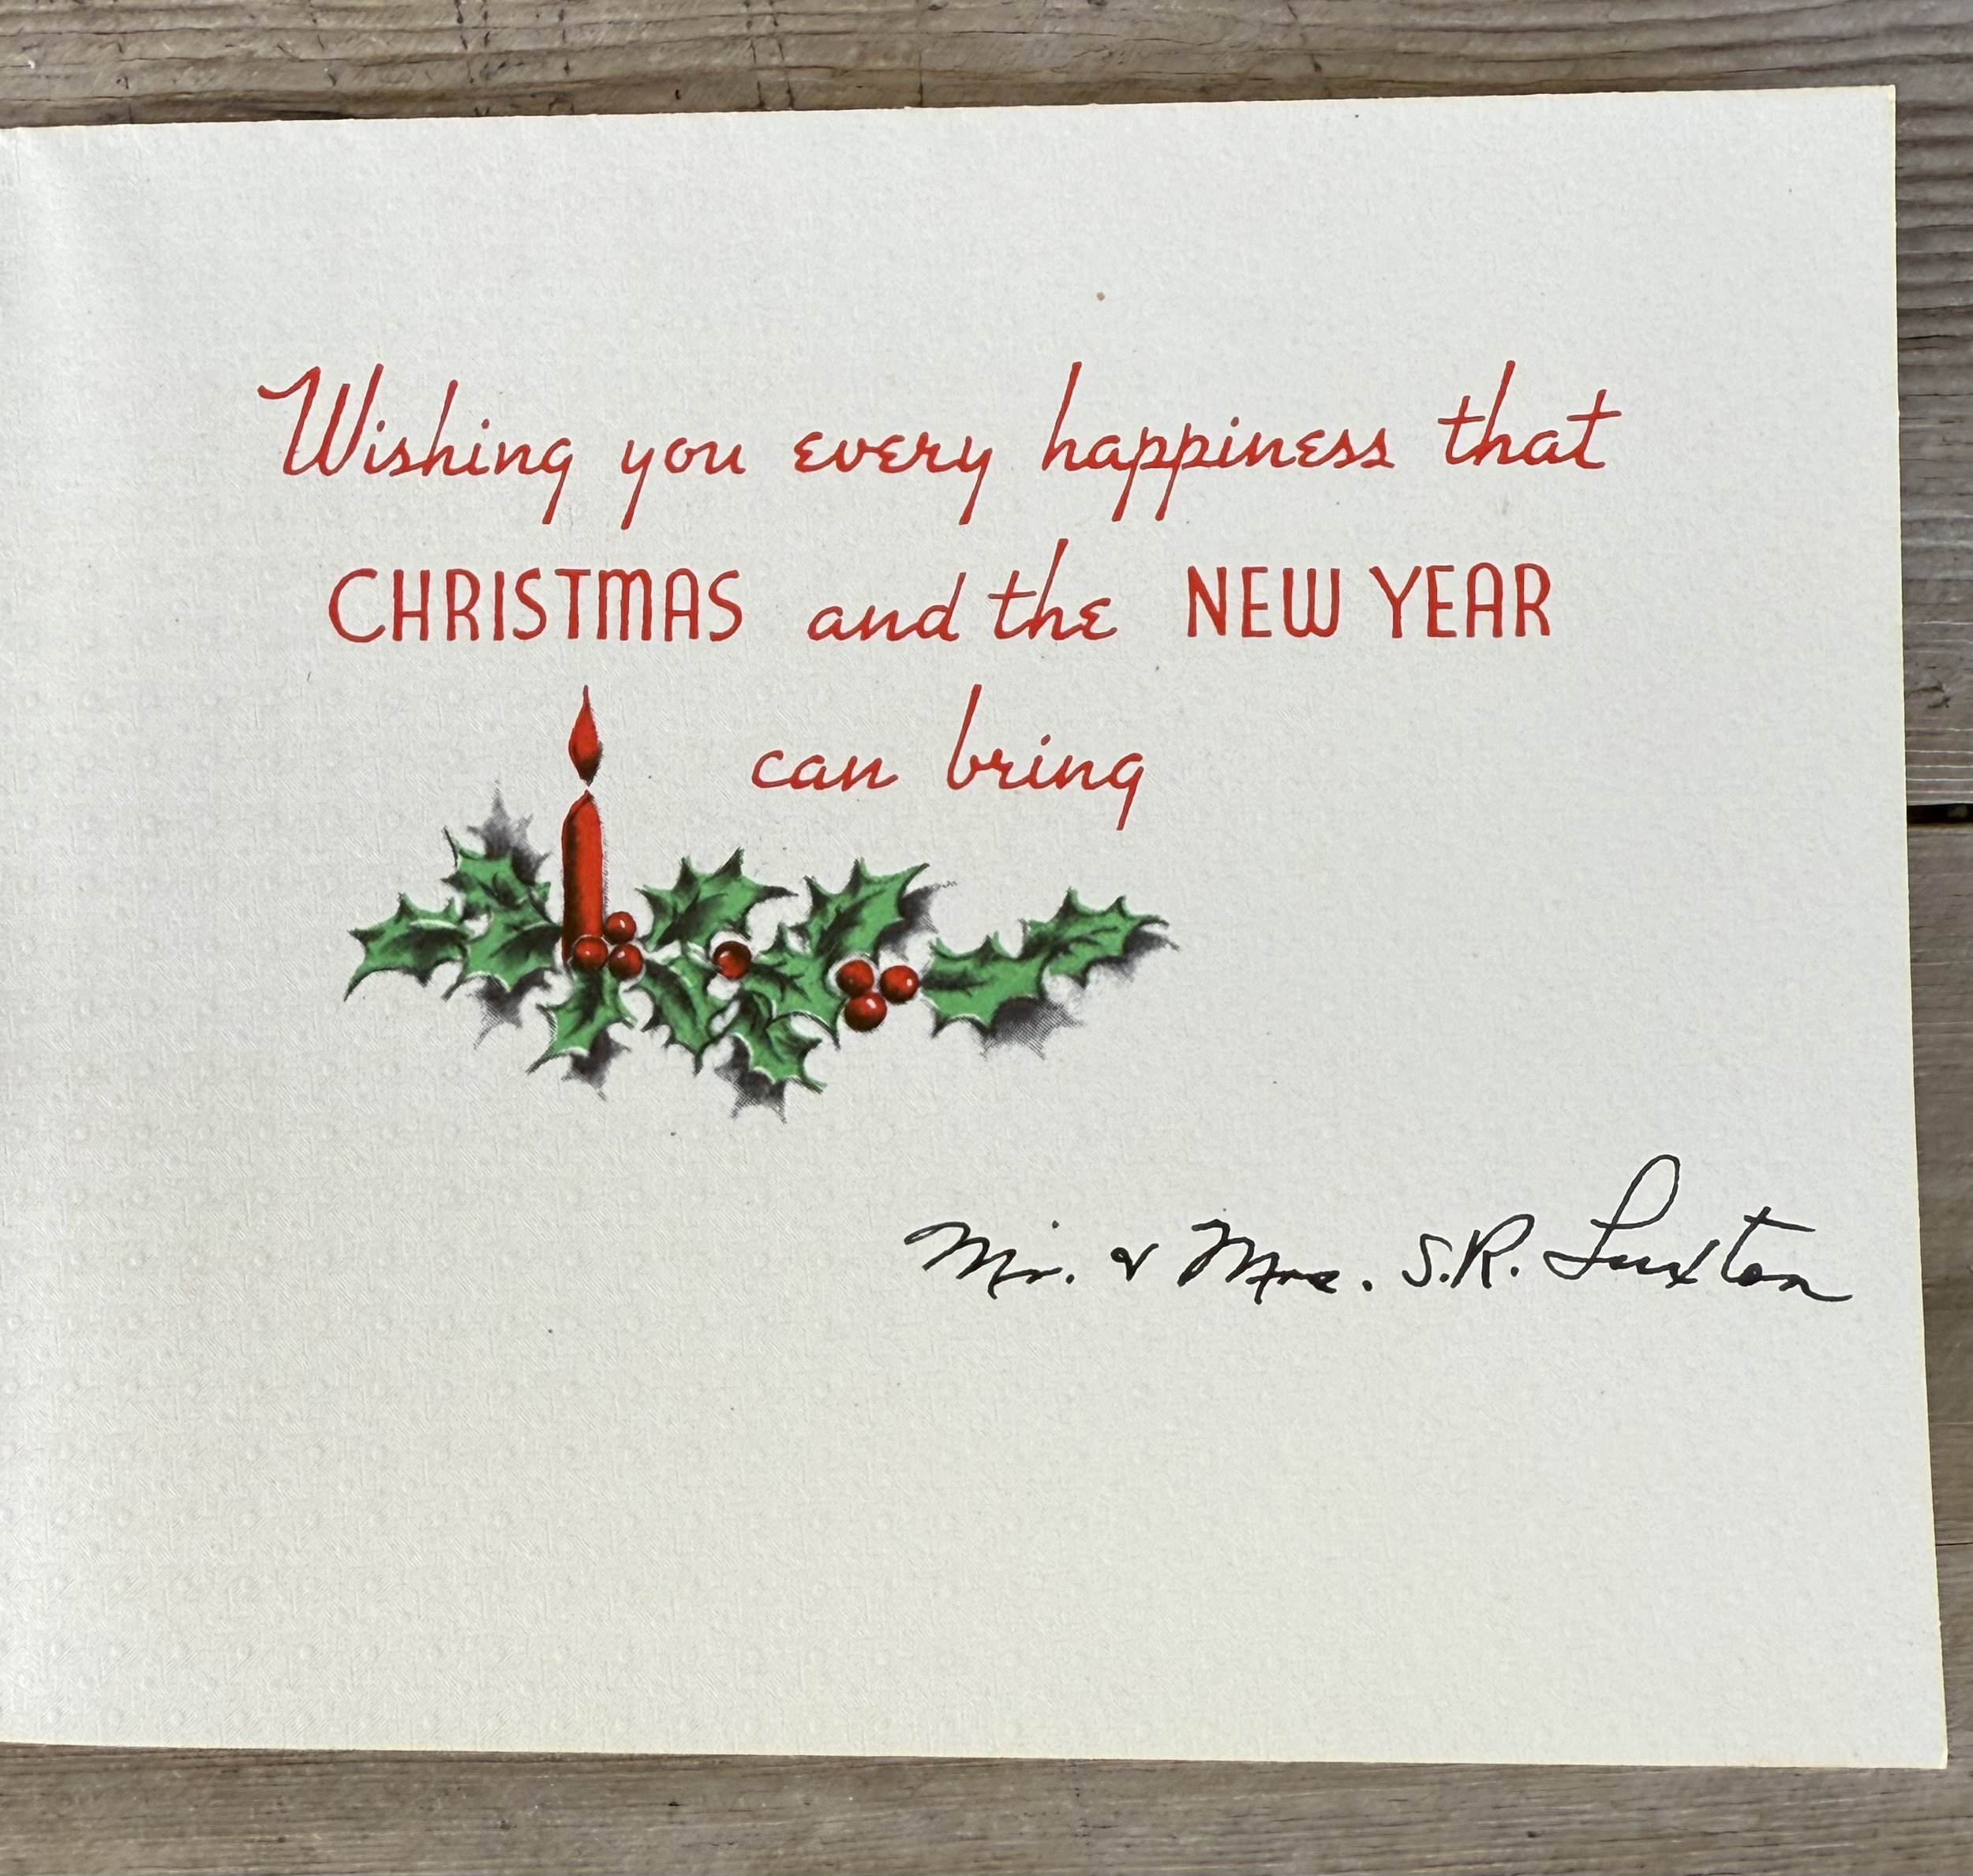 Wishing you every happiness that
CHRISTMAS and the NEW YEAR
can bring
Mr. & Mrs. S.R. Luxton